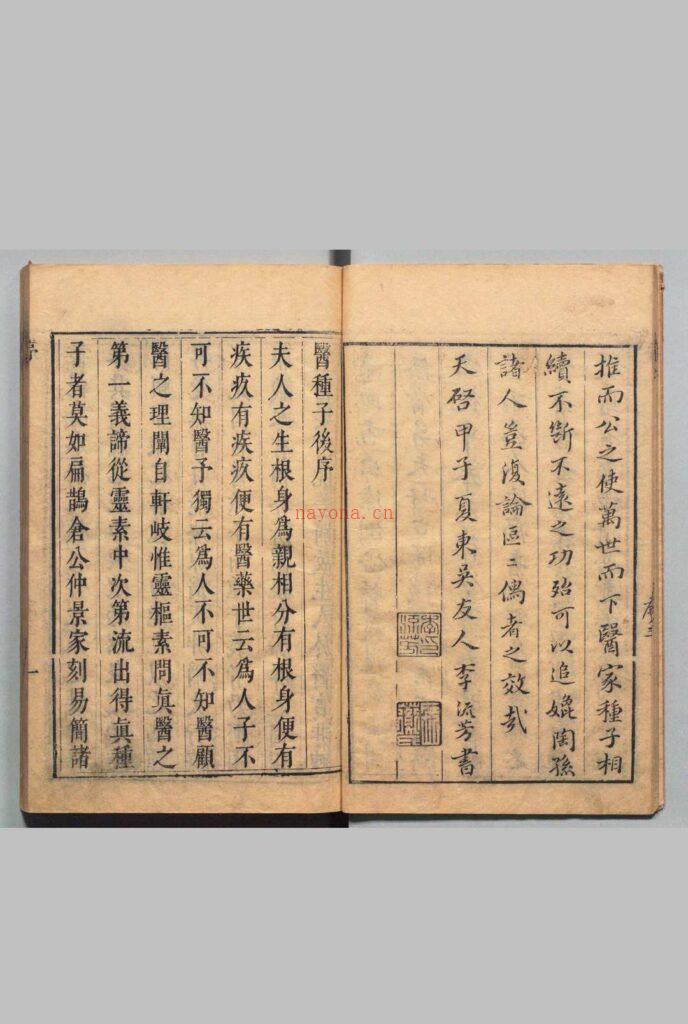 推而公之使萬世而下醫家種子相
續不斷不遠之功殆可以追媲陶孫
諸人豈復論區二偶者之效哉
天啓甲子夏東吳友人李流芳書
醫種子後序
夫人之生根身爲親相分有根身便有
疾疚有疾疚便有醫藥世云爲人子不
可不知醫予獨云爲人不可不知醫顧
醫之理闡自軒岐惟靈樞素問眞醫之
第一義諦從靈素中次第流出得眞種
子者莫如扁鵲倉公仲景家刻易簡諸
一
nayona.cn